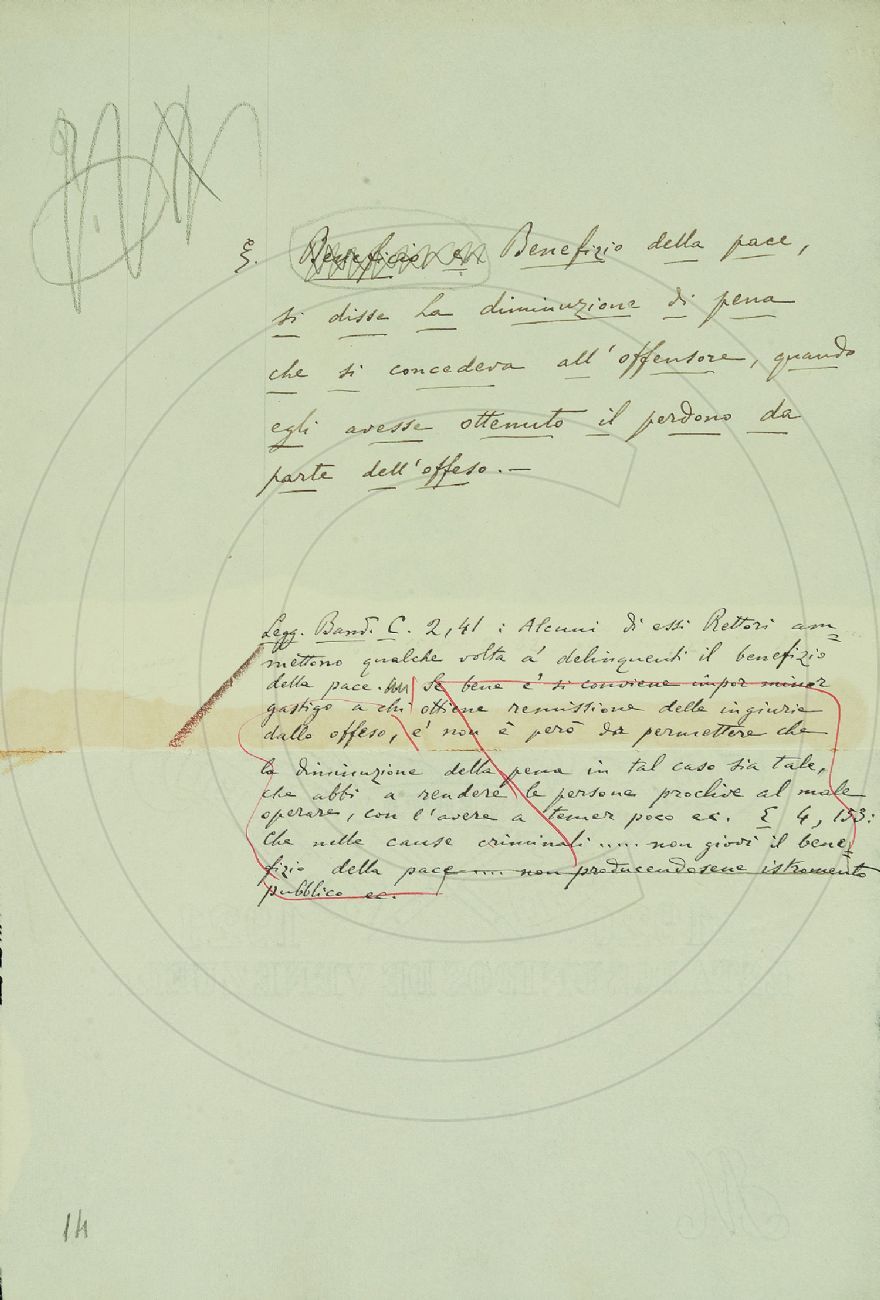 §. Beneficio e Benefizio della pace,
si disse la diminuzione di pena
che si concedeva all'offensore, quando
egli avesse ottenuto il perdono da
parte dell'offeso.—
Legg. Band. C. 2, 41 : Alcuni di essi Rettori am=
mettono qualche volta a' delinquenti il benefizio
della pace. Se bene e' si conviene impor minor
gastigo a chi ottiene remissione delle ingiurie
dallo offeso, e' non è però da permettere che
la diminuzione della pena in tal caso sia tale,
che abbi a rendere le persone proclive al male
operare, con l'avere a temer poco ec. E 4, 153:
Che nelle cause criminali ..... non giovi il bene=
fizio della pace .... non producendosene istromento
pubblico ec.
14